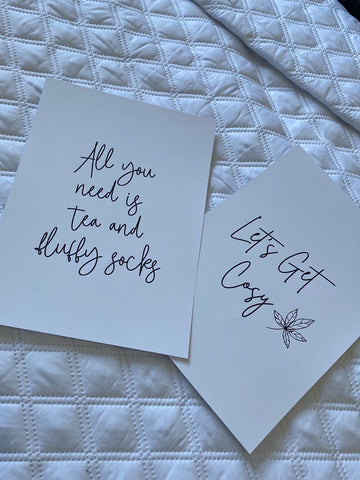 All you
need is
tea and
fluffy socks
Let's Get
Cosy